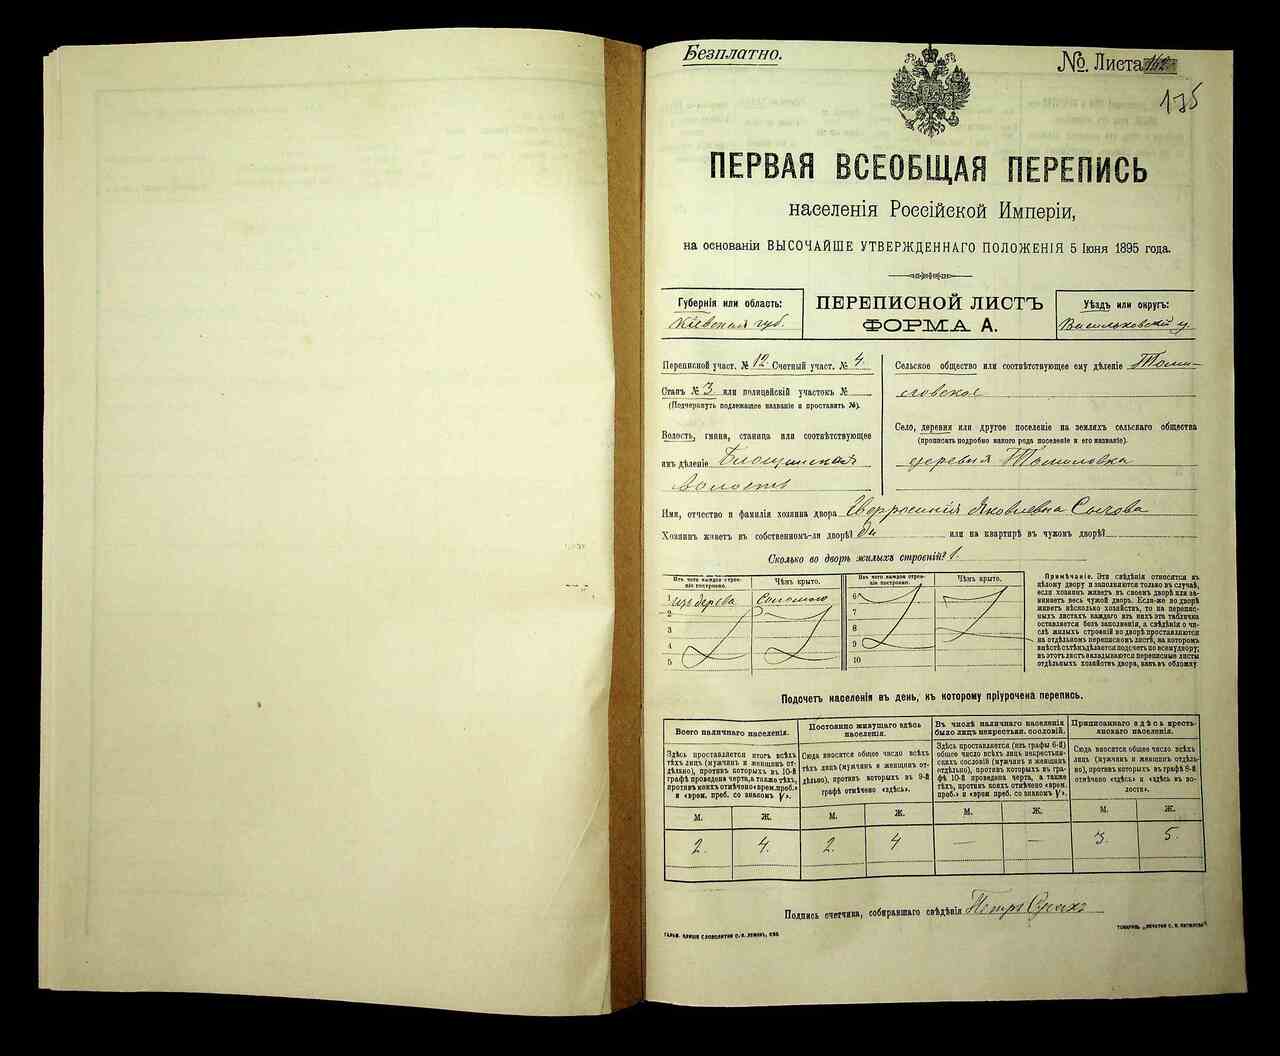 Безплатно.
№ Листа
135
ПЕРВАЯ ВСЕОБЩАЯ ПЕРЕПИСЬ
населенія Россійской Имперіи,
на основаніи ВЫСОЧАЙШЕ УТВЕРЖДЕННАГО ПОЛОЖЕНІЯ 5 Іюня 1895 года.
Губернія или область:
Кіевская губ.
ПЕРЕПИСНОЙ ЛИСТЪ
ФОРМА А.
Уѣздъ или округъ:
Васильковскій у.
Переписной участ. № 12 Счетный участ. № 4
Станъ № 3 или полицейскій участокъ №
(Подчеркнуть подлежащее названіе и проставить №).
Волость, гмина, станица или соотвѣтствующее
имъ дѣленіе Блощинская
волость
Сельское общество или соотвѣтствующее ему дѣленіе Томи-
ловское
Село, деревня или другое поселеніе на земляхъ сельскаго общества
(прописать подробно какого рода поселеніе и его названіе).
деревня Томиловка
Имя, отчество и фамилія хозяина двора Яковлевна Сычова
Хозяинъ живетъ въ собственномъ-ли дворѣ? Да или на квартирѣ въ чужомъ дворѣ?
Сколько во дворѣ жилыхъ строеній? 1.
Изъ чего каждое строеніе построено.
Чѣмъ крыто.
1 изъ дерева Соломою
2
3
4
5
Изъ чего каждое строеніе построено.
Чѣмъ крыто.
6
7
8
9
10
Примѣчаніе. Эти свѣдѣнія относятся къ
цѣлому двору и заполняются только въ случаѣ,
если хозяинъ живетъ въ своемъ дворѣ или за-
нимаетъ весь чужой дворъ. Если-же во дворѣ
живетъ нѣсколько хозяйствъ, то на перепис-
ныхъ листахъ каждаго изъ нихъ эта табличка
оставляется безъ заполненія, а свѣдѣнія о чи-
слѣ жилыхъ строеній во дворѣ проставляются
на отдѣльномъ переписномъ листѣ, на которомъ
вмѣстѣ съ тѣмъ дѣлается подсчетъ по всему двору;
въ этотъ листъ вкладываются переписные листы
отдѣльныхъ хозяйствъ двора, какъ въ обложку.
Подсчетъ населенія въ день, къ которому пріурочена перепись.
Всего наличнаго населенія.
Здѣсь проставляется итогъ всѣхъ
тѣхъ лицъ (мужчинъ и женщинъ от-
дѣльно), противъ которыхъ въ 10-й
графѣ проведена черта, а также тѣхъ,
противъ коихъ отмѣчено «врем. преб.»
и «врем. преб. со знакомъ V».
Постоянно живущаго здѣсь
населенія.
Сюда вносится общее число всѣхъ
тѣхъ лицъ (мужчинъ и женщинъ от-
дѣльно), противъ которыхъ въ 9-й
графѣ отмѣчено «здѣсь».
Въ числѣ наличнаго населенія
было лицъ некрестьян. сословій.
Здѣсь проставляется (изъ графы 6-й)
общее число всѣхъ лицъ некрестьян-
скихъ сословій (мужчинъ и женщинъ
отдѣльно), противъ которыхъ въ гра-
фѣ 10-й проведена черта, а также
тѣхъ, противъ коихъ отмѣчено «врем.
преб.» и «врем. преб. со знакомъ V».
Приписаннаго здѣсь кресть-
янскаго населенія.
Сюда вносится общее число всѣхъ
лицъ (мужчинъ и женщинъ отдѣль-
но), противъ которыхъ въ графѣ 8-й
отмѣчено «здѣсь» и «здѣсь въ во-
лости».
М. Ж. М. Ж. М. Ж. М. Ж.
2. 4. 2. 4 — — 3. 5.
Подпись счетчика, собиравшаго свѣдѣнія Петръ